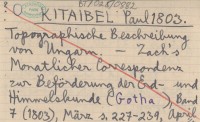 KITAIBEL Paul 1803.
Topographische Beschreibung
von Ungarn. — Zach's
Monatlicher Correspondenz
zur Beförderung der Erd- und
Himmelskunde (Gotha) Band
7 (1803), März s. 227-239, April